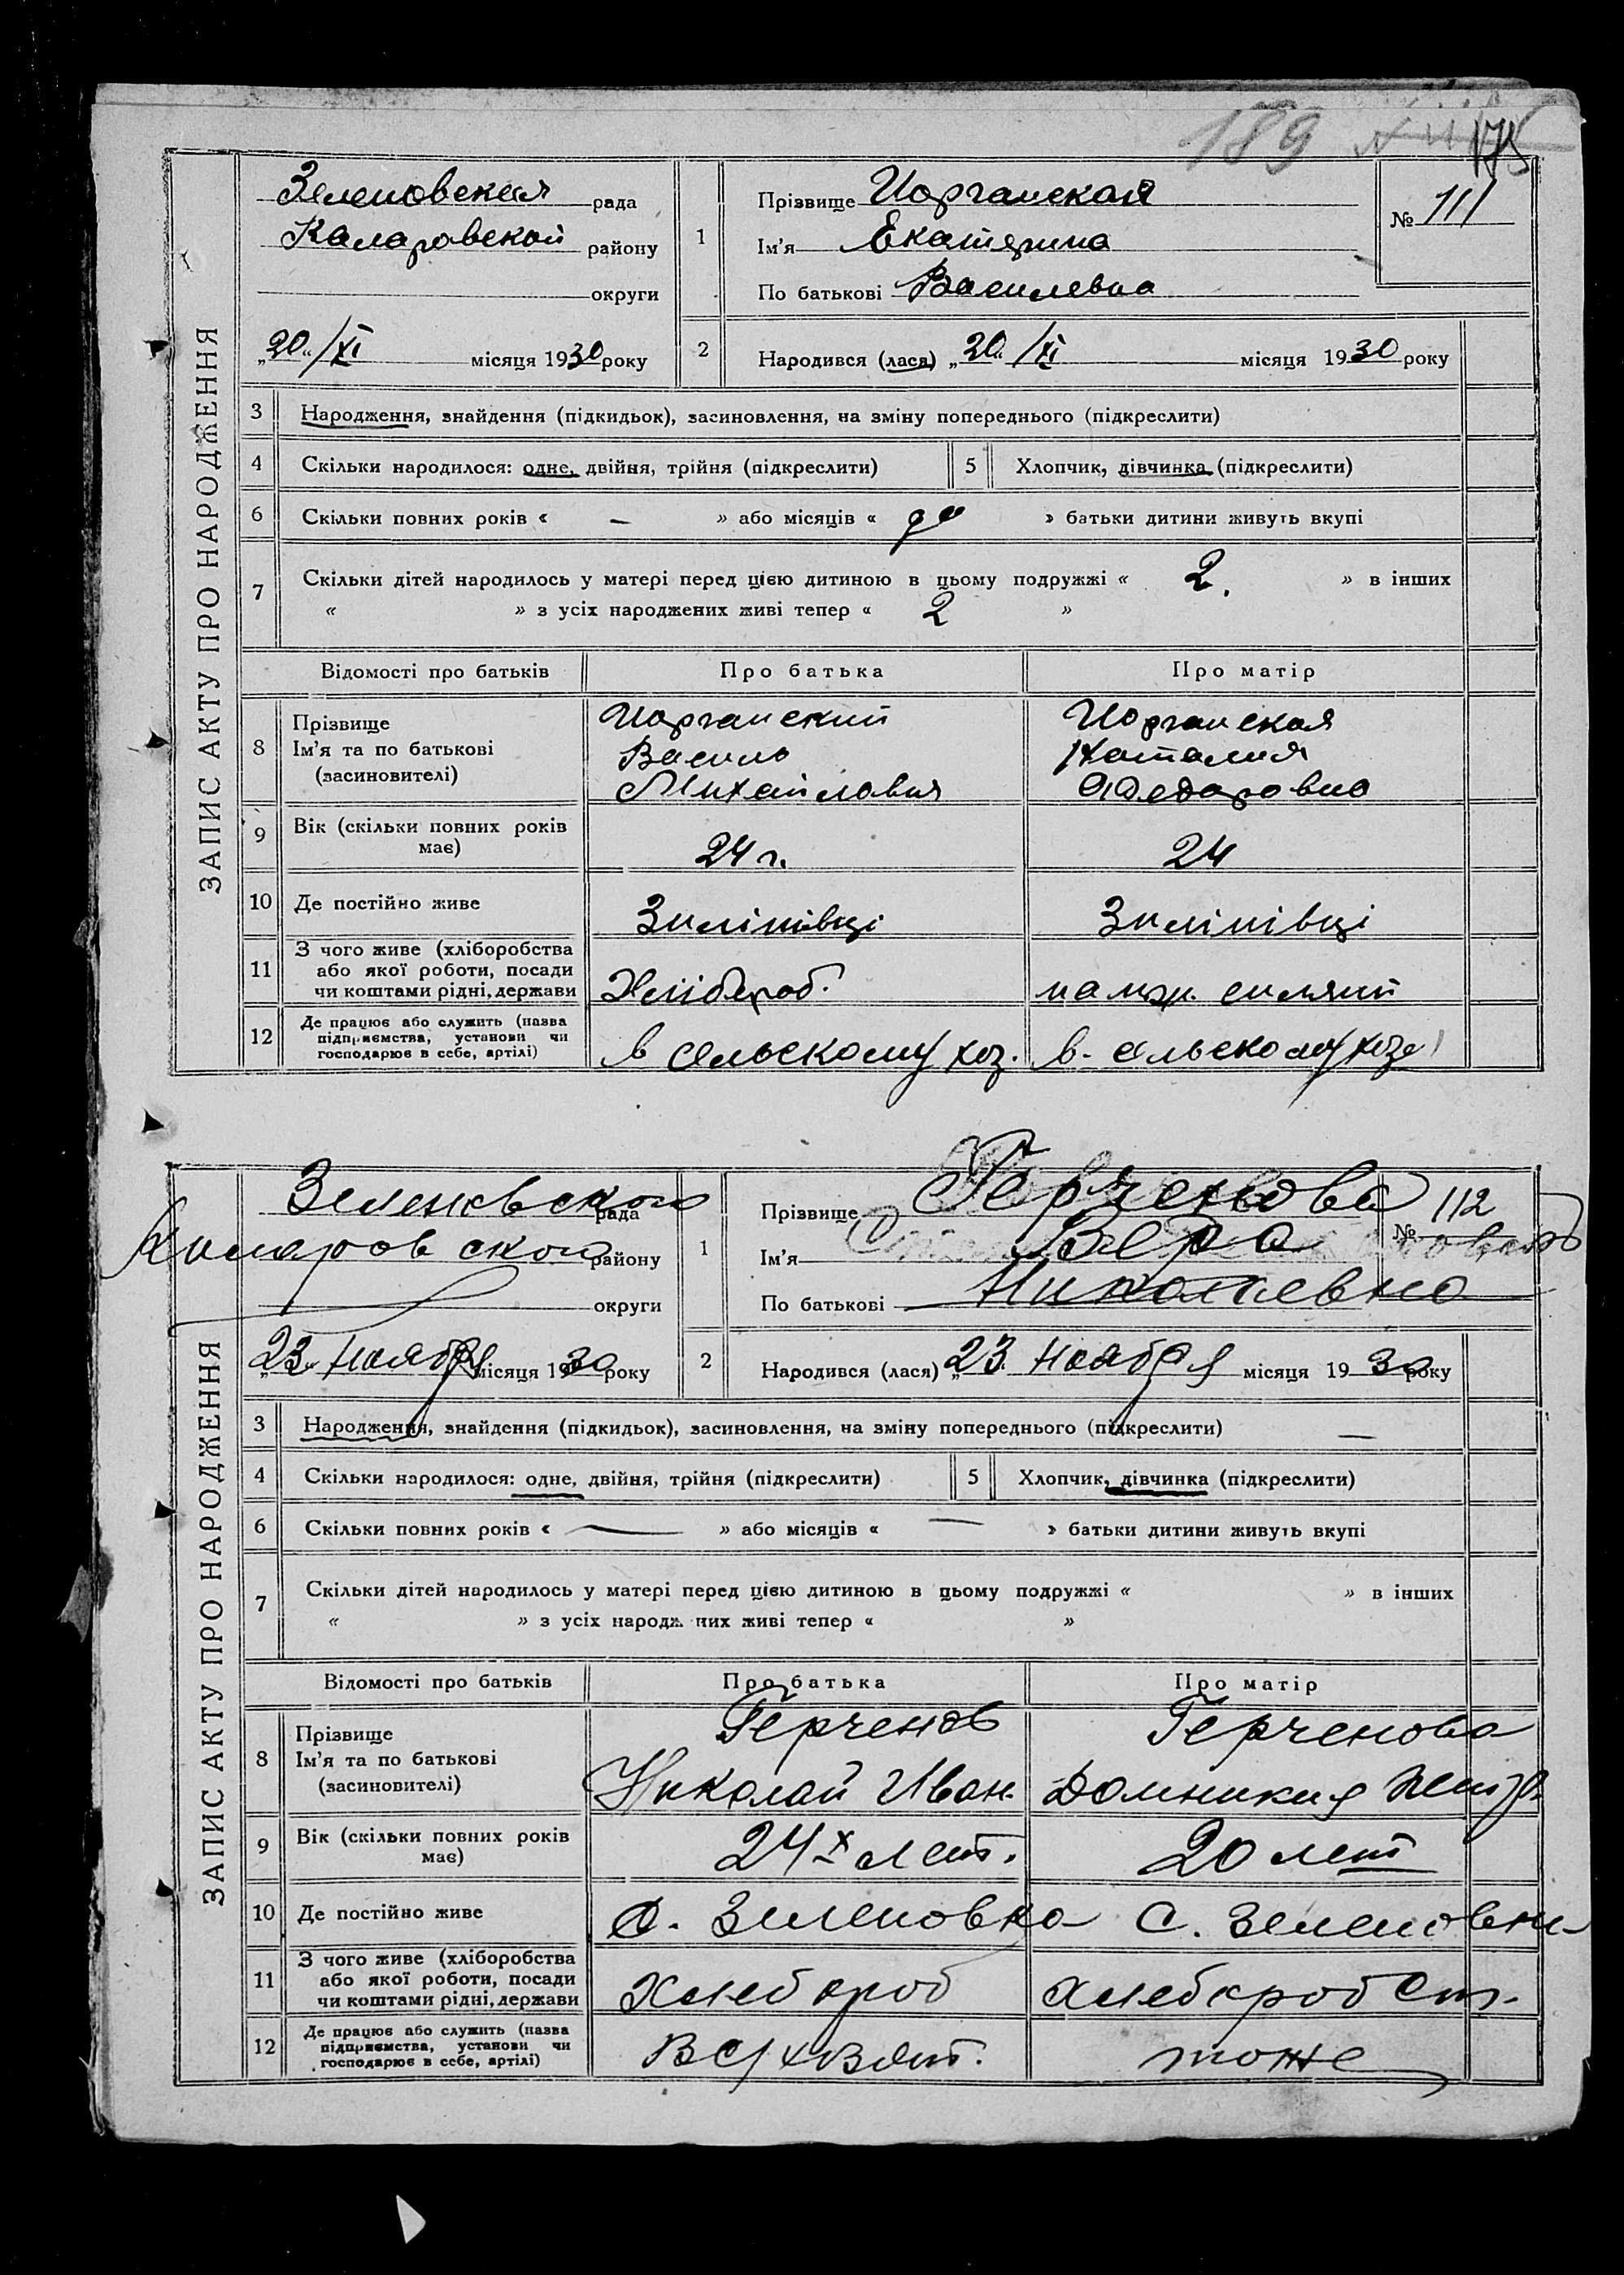 189
175
ЗАПИС АКТУ ПРО НАРОДЖЕННЯ
Зеленовская рада
Каларовской району
округи
„20“/XI місяця 1930 року
1
Прізвище Иорганская
Ім'я Екатерина
По батькові Василевна
№ 111
2 Народився (лася) „20“/XI місяця 1930 року
3 Народження, знайдення (підкидьок), засиновлення, на зміну попереднього (підкреслити)
4 Скільки народилося: одне, двійня, трійня (підкреслити) 5 Хлопчик, дівчинка (підкреслити)
6 Скільки повних років « — » або місяців « » батьки дитини живуть вкупі
7 Скільки дітей народилось у матері перед цією дитиною в цьому подружжі « 2. » в інших
« » з усіх народжених живі тепер « 2 »
Відомості про батьків Про батька Про матір
8 Прізвище Иорганский Иорганская
Ім'я та по батькові Василь Наталия
(засиновителі) Михайлович Федоровна
9 Вік (скільки повних років має) 24 г. 24
10 Де постійно живе Зиліпівці Зиліпівці
11 З чого живе (хліборобства
або якої роботи, посади
чи коштами рідні, держави Хлібороб.
12 Де працює або служить (назва
підприємства, установи чи
господарює в себе, артілі) в сельскому хоз. в. сельскому хозе
ЗАПИС АКТУ ПРО НАРОДЖЕННЯ
Зеленовского рада
Коларовского району
округи
„23“ ноября місяця 1930 року
1
Прізвище Герченова
Ім'я Вера
По батькові Николаевна
№ 112
2 Народився (лася) „23. ноября місяця 1930 року
3 Народження, знайдення (підкидьок), засиновлення, на зміну попереднього (підкреслити) —
4 Скільки народилося: одне, двійня, трійня (підкреслити) 5 Хлопчик, дівчинка (підкреслити)
6 Скільки повних років « — » або місяців « — » батьки дитини живуть вкупі
7 Скільки дітей народилось у матері перед цією дитиною в цьому подружжі « » в інших
« » з усіх народж них живі тепер « »
Відомості про батьків Про батька Про матір
8 Прізвище Герченов Герченова
Ім'я та по батькові
(засиновителі) Николай Иван. Домникия Петр.
9 Вік (скільки повних років має) 24х лет. 20 лет
10 Де постійно живе С. Зиленовка С. Зеленовки
11 З чого живе (хліборобства
або якої роботи, посади
чи коштами рідні, держави Хлебороб Хлебороб
12 Де працює або служить (назва
підприємства, установи чи
господарює в себе, артілі) тоже